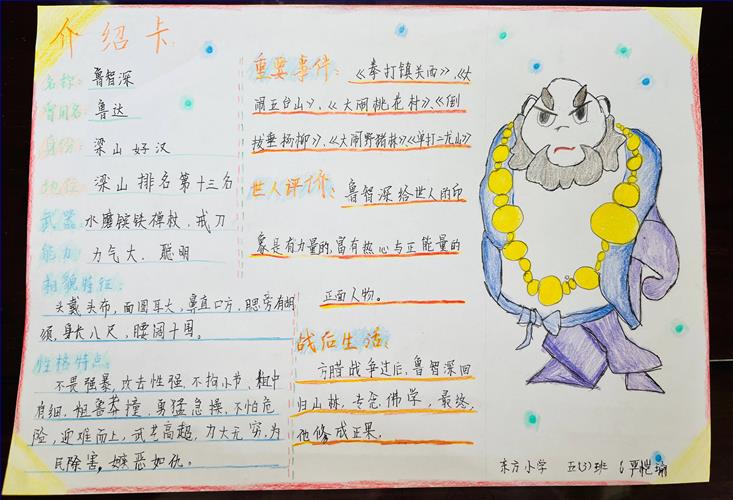 介绍卡
名称：鲁智深
曾用名：鲁达
身份：梁山好汉
地位：梁山排名第十三名
武器：水磨镔铁禅杖、戒刀
能力：力气大、聪明
相貌特征：
头戴头布，面圆耳大，鼻直口方，腮旁有胡
须，身长八尺，腰阔十围。
性格特点：
不畏强暴，攻击性强，不拘小节，粗中
有细，粗鲁莽撞，勇猛急操，不怕危
险，迎难而上，武艺高超，力大无穷，为
民除害，嫉恶如仇。
重要事件：《拳打镇关西》、《大
闹五台山》、《大闹桃花村》、《倒
拔垂杨柳》、《大闹野猪林》《单打二龙山》
世人评价：鲁智深给世人的印
象是有力量的，富有热心与正能量的
正面人物。
战后生活：
方腊战争过后，鲁智深回
归山林，专念佛学，最终，
他修成正果。
东方小学 五(3)班 严恺